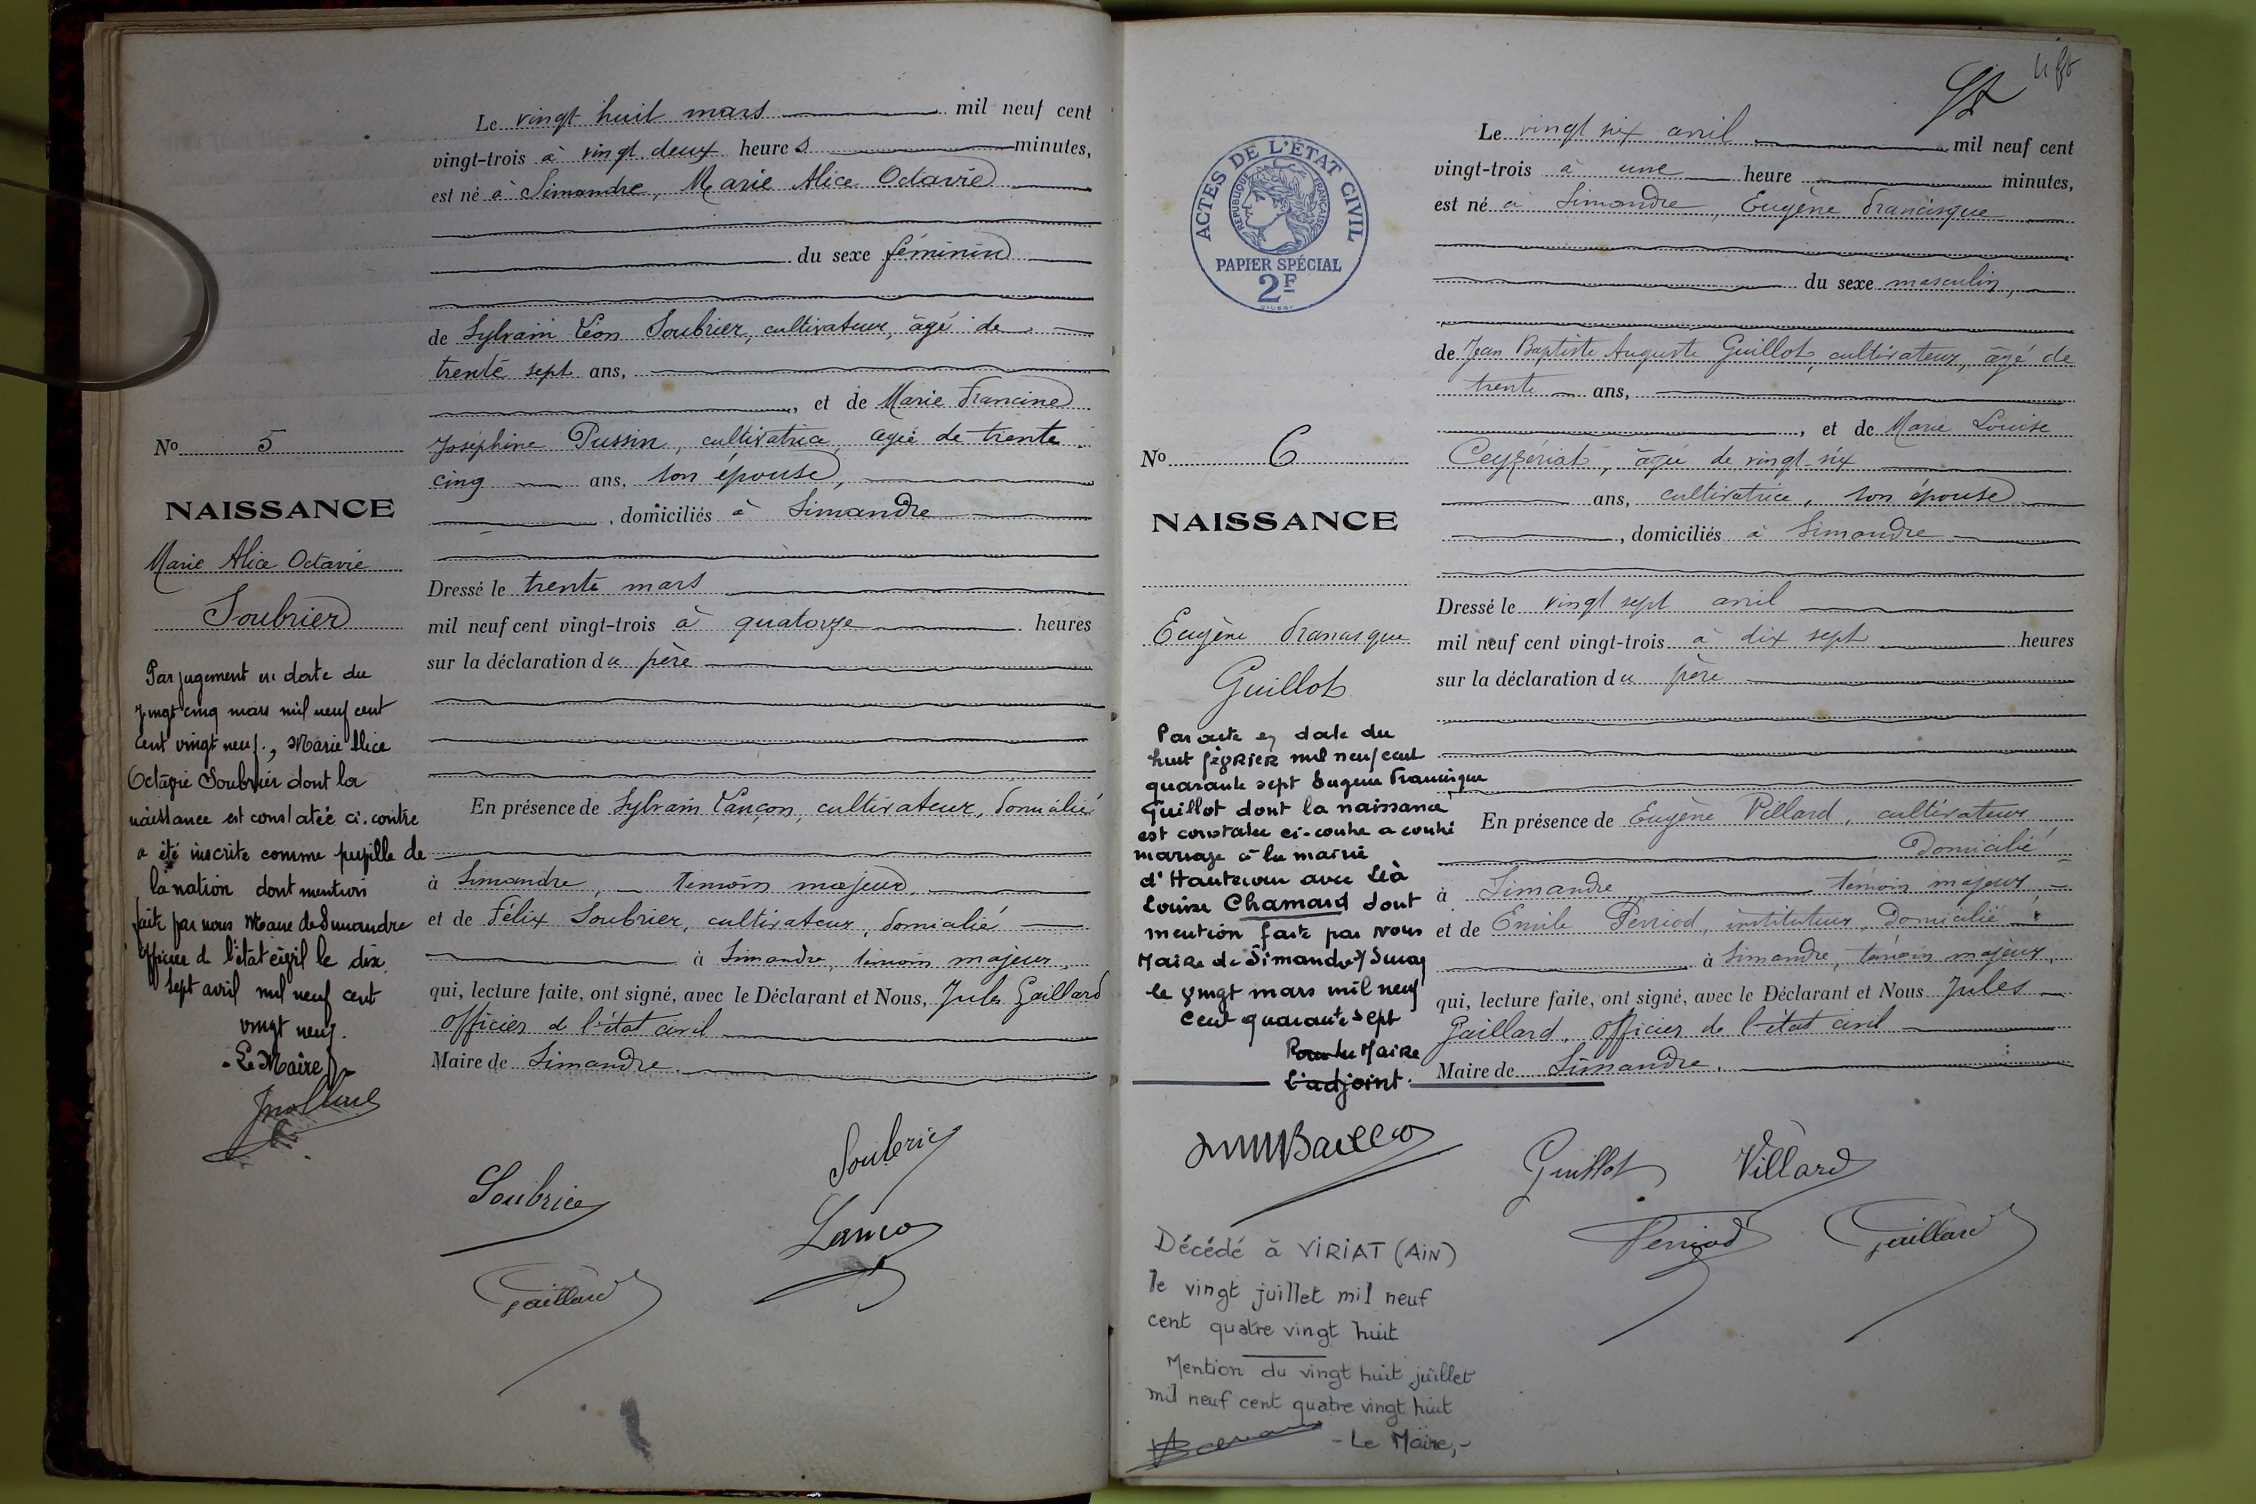 Le vingt huit mars mil neuf cent
vingt-trois à vingt deux heures minutes,
est né à Simandre, Marie Alice Octavie
du sexe féminin
de Sylvain Léon Soubrier, cultivateur, âgé de
trente sept ans,
, et de Marie Francine
Joséphine Pussin, cultivatrice, agée de trente
cinq ans, son épouse,
, domiciliés à Simandre
Dressé le trente mars
mil neuf cent vingt-trois à quatorze heures
sur la déclaration du père
En présence de Sylvain Lançon, cultivateur, domicilié
à Simandre, témoin majeur,
et de Félix Soubrier, cultivateur, domicilié
à Simandre, témoin majeur,
qui, lecture faite, ont signé, avec le Déclarant et Nous, Jules Gaillard
officier de l'état civil
Maire de Simandre.
Soubrier
Soubrier
Lançon
Gaillard
No 5
NAISSANCE
Marie Alice Octavie
Soubrier
Par jugement en date du
vingt cinq mars mil neuf cent
cent vingt neuf., Marie Alice
Octavie Soubrier dont la
naissance est constatée ci-contre
a été inscrite comme pupille de
la nation dont mention
faite par nous Maire de Simandre
officier d l'état civil le dix
sept avril mil neuf cent
vingt neuf.
Le Maire
Le vingt six avril mil neuf cent
vingt-trois à une heure minutes,
est né à Simandre, Eugène Francisque
du sexe masculin,
de Jean Baptiste Auguste Guillot, cultivateur, âgé de
trente ans,
, et de Marie Louise
Ceyzériat, âgée de vingt-six
ans, cultivatrice, son épouse
, domiciliés à Simandre
Dressé le vingt sept avril
mil neuf cent vingt-trois à dix sept heures
sur la déclaration du père
En présence de Eugène Villard, cultivateur
Domicilié
à Simandre témoin majeur
et de Emile Perriod, instituteur, Domicilié
à Simandre, témoin majeur,
qui, lecture faite, ont signé, avec le Déclarant et Nous Jules
Gaillard, officier de l'état civil
Maire de Simandre.
Guillot
Villard
Perriod
Gaillard
ACTES DE L'ÉTAT CIVIL
RÉPUBLIQUE FRANÇAISE
PAPIER SPÉCIAL
2F
No 6
NAISSANCE
Eugène Francisque
Guillot
Par acte en date du
huit février mil neuf cent
quarante sept Eugène Francisque
Guillot dont la naissance
est constatée ci-contre a contré
mariage à la mairie
d'Hautecour avec Léa
Louise Chamard dont
mention faite par nous
Maire de Simandre s/ Suran
le vingt mars mil neuf
cent quarante sept
Pour le Maire
L'adjoint.
Décédé à VIRIAT (AiN)
le vingt juillet mil neuf
cent quatre vingt huit
Mention du vingt huit juillet
mil neuf cent quatre vingt huit
- Le Maire,-